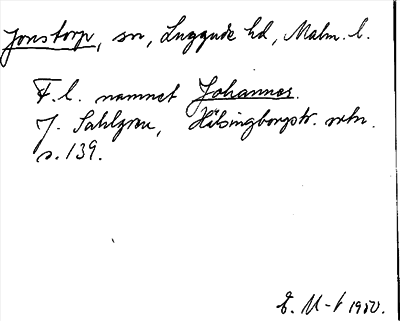 Jonstorp, sn, Luggude hd, Malm. l.
F. l. namnet Johannes.
J. Sahlgren, Hälsingborgstr. ortn.
s. 139.
E. M-t 1950.